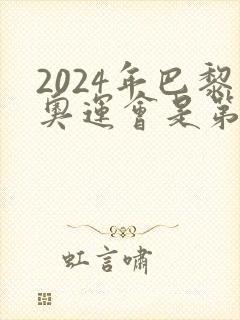 2024年巴黎
奧運會是第
虹言嘯